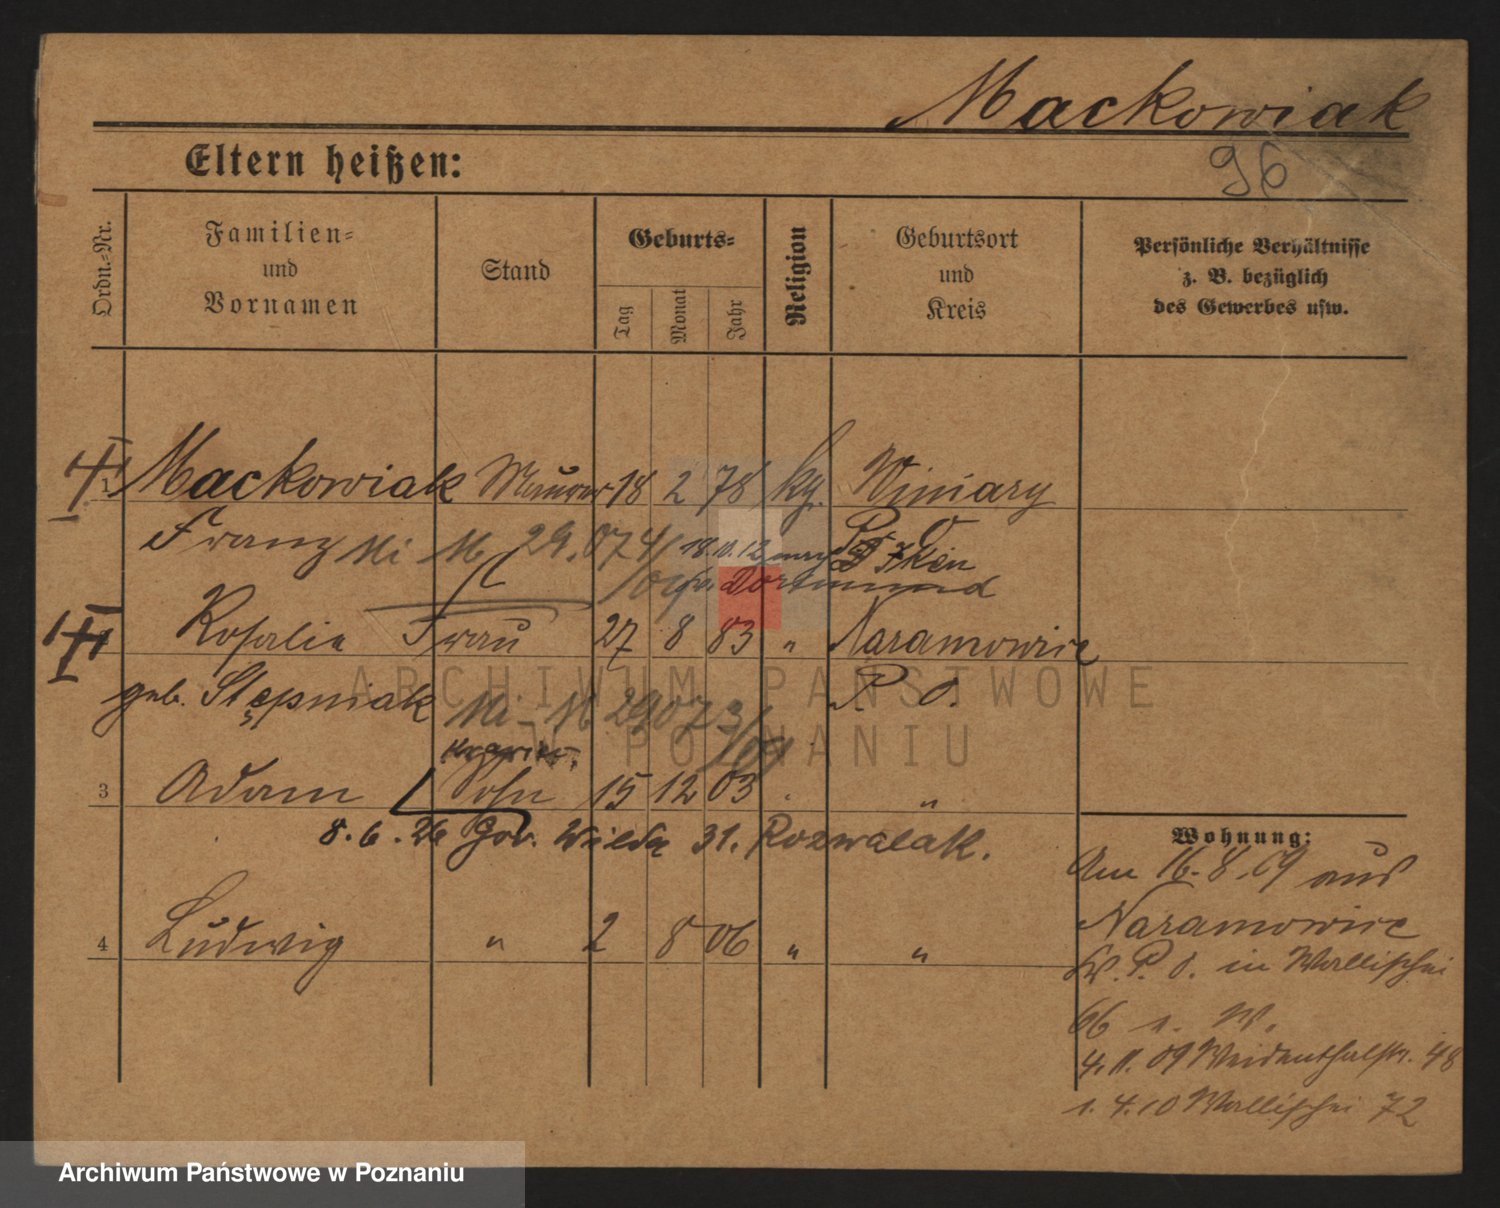 Mackowiak
96
Eltern heißen:
Ordn.-Nr.
Familien-
und
Vornamen
Stand
Geburts-
Tag
Monat
Jahr
Religion
Geburtsort
und
Kreis
Persönliche Verhältnisse
z. B. bezüglich
des Gewerbes usw.
1 Mackowiak Maurer 18 2 78 kg. Winiary
Franz 29.07 18.11.12 P. O.
Dortmund
Rosalie Frau 27 8 83 " Naramowice
geb. Stępniak P. O.
ARCHIWUM PAŃSTWOWE
W POZNANIU
3 Adam Sohn 15 12 03 " "
8.6.26 Gór. Wilda 31. Rozwalak.
4 Ludwig " 2 8 06 " "
Wohnung:
Am 16.8.09 aus
Naramowice
P. O. in Wallischei
66
4.11.09 Weidenthalstr. 48
1.4.10 Wallischei 72
Archiwum Państwowe w Poznaniu